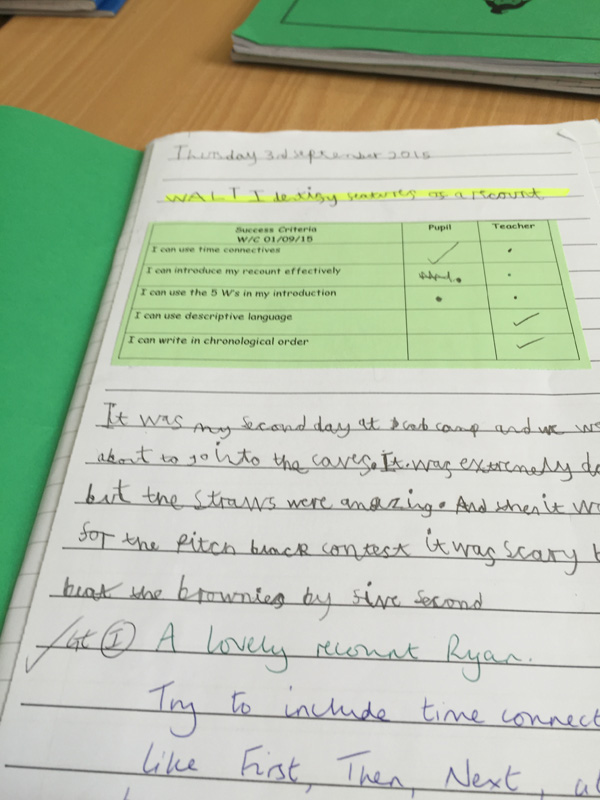 Thursday 3rd September 2015
WALT Identify features of a recount
Success Criteria Pupil Teacher
W/C 01/09/15
I can use time connectives ✓ •
I can introduce my recount effectively •
I can use the 5 W's in my introduction • •
I can use descriptive language ✓
I can write in chronological order ✓
It was my second day at camp and we
about to go into the caves. It was extremely
but the straws were amazing. And then it
for the Pitch black contest it was scary
beat the brownies by five second
A lovely recount Ryan.
Try to include time
like First, Then, Next,